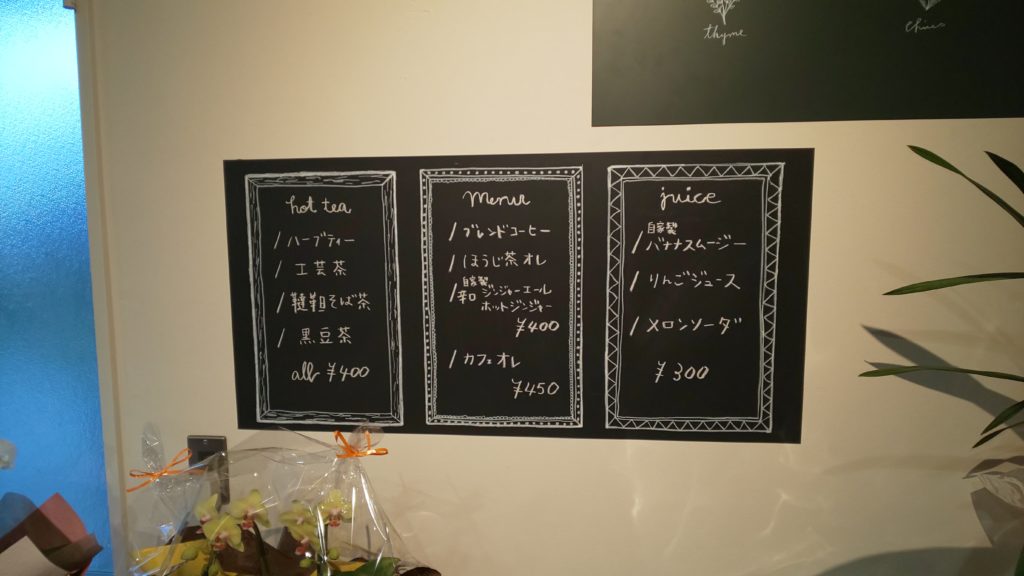 thyme
hot tea
/ ハーブティー
/ 工芸茶
/ 韃靼そば茶
/ 黒豆茶
all ¥400
menu
/ ブレンドコーヒー
/ ほうじ茶オレ
自家製
/ 和ジンジャーエール
ホットジンジャー
¥400
/ カフェオレ
¥450
juice
自家製
/ バナナスムージー
/ りんごジュース
/ メロンソーダ
¥300